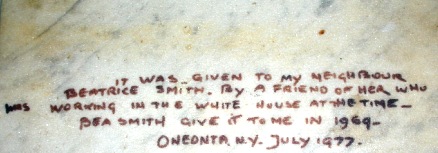 IT WAS GIVEN TO MY NEIGHBOUR
BEATRICE SMITH. BY A FRIEND OF HER WHO
WAS WORKING IN THE WHITE HOUSE AT THE TIME-
BEA SMITH GIVE IT TO ME IN 1969-
ONEONTA N.Y. JULY 1977.